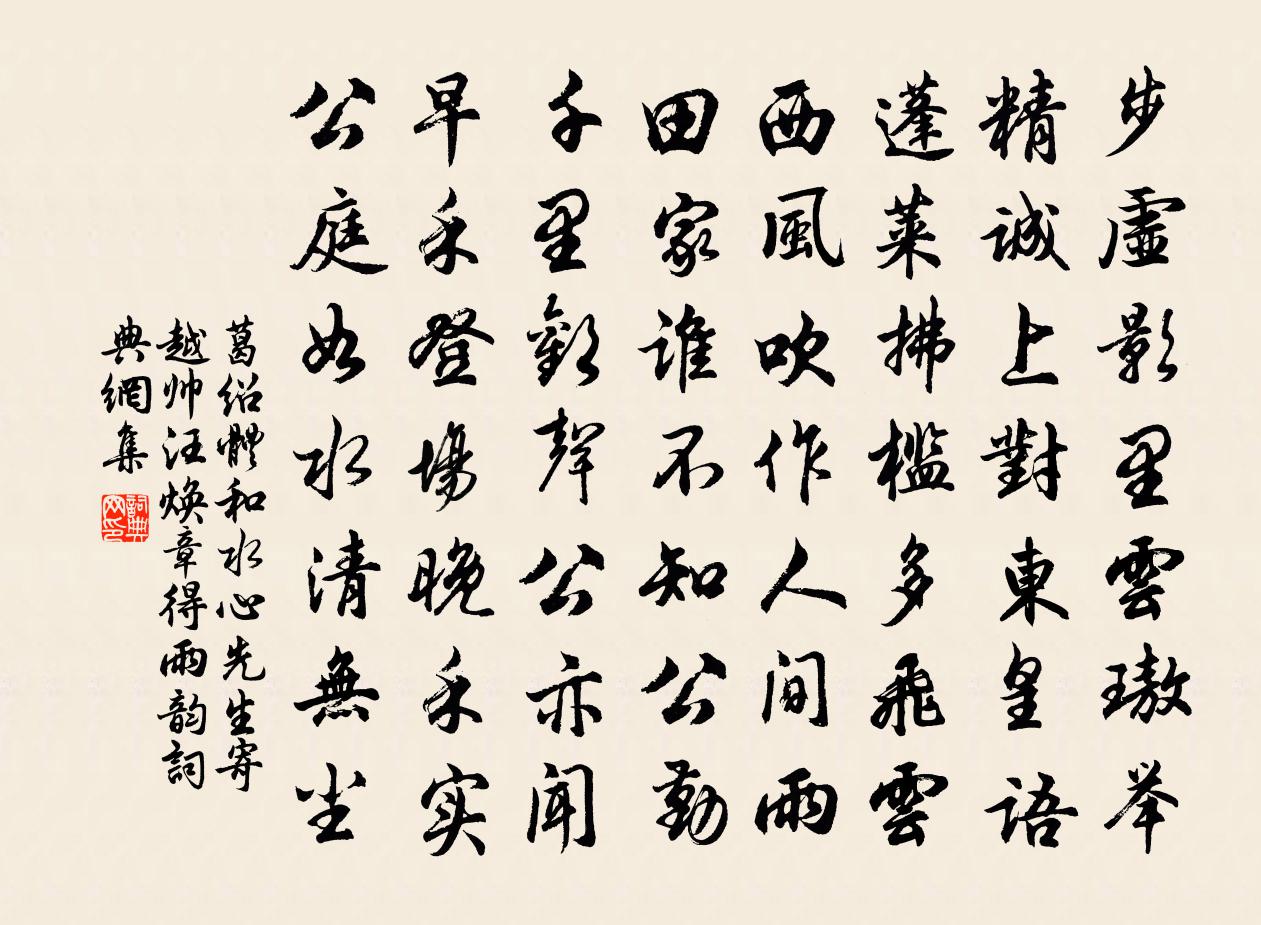 步虛影里雲璈举
精誠上對東皇語
蓬萊拂檻多飛雲
西風吹作人間雨
田家誰不知公勤
千里歡聲公亦聞
早禾登場晚禾实
公庭如水清無尘
葛绍體和水心先生寄
越帅汪焕章得雨韵詞
典網集
詞典
网印